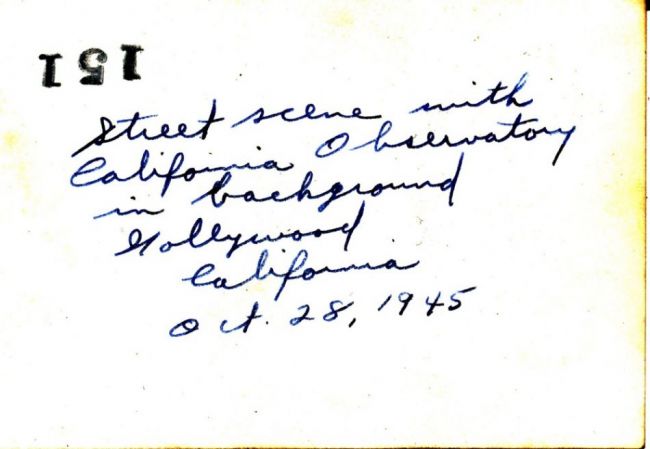 151
Street scene with
California Observatory
in background
Hollywood
California
Oct. 28, 1945